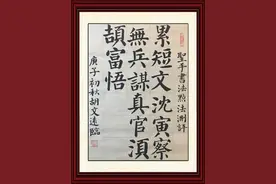 聖手書法點法測評
累短文沈寅察
無兵謀真官須
頡富悟
庚子初秋胡文遠臨